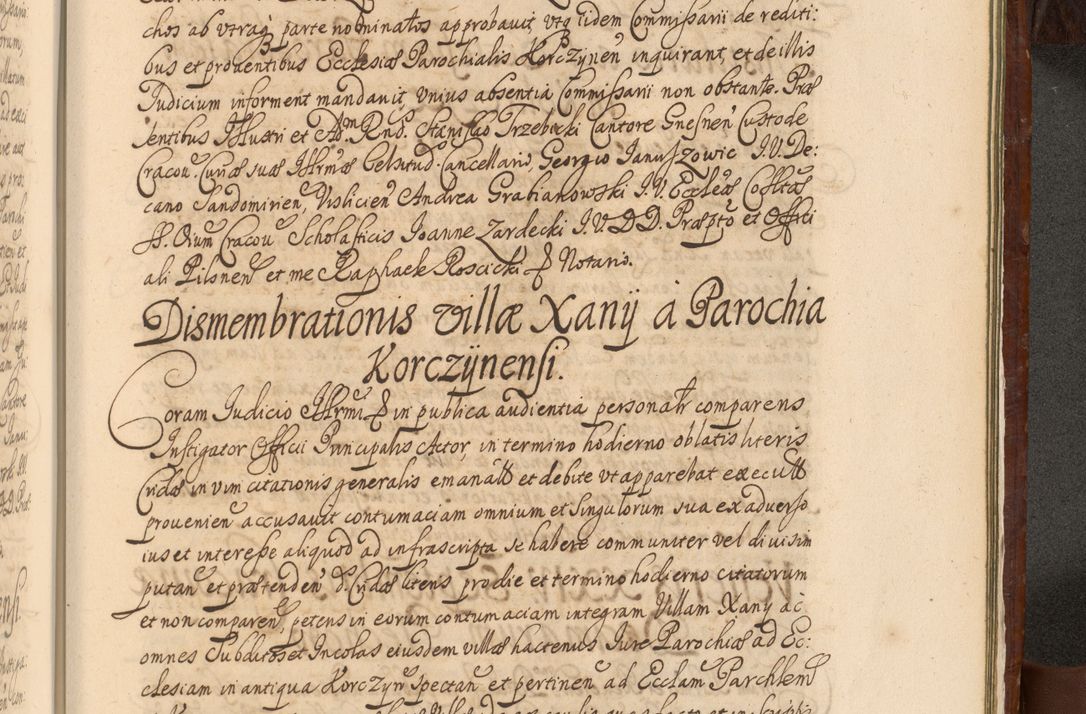 chos ab vtraq3 parte nominatos approbauit, vtq3 iidem Commissarii de rediti:
bus et prouentibus Ecclesiæ Parochialis Korczynen̄ inquirant, et de illis
Iudicium informent mandauit, vnius absentia Commissarii non obstante. Præ
sentibus Illustri et Adm Rnd. Stanislao Trzebicki Cantore Gnesnen̄ Custode
Cracou. Curiæ suæ Illrmæ Celsitud. Cancellario, Georgio Ianuszowic I.V. De:
cano Sandomirien̄, Vislicien̄ Andrea Grabianowski I.V. Eccleæ Colltæ
SS. Oium Cracou Scholasticis Ioanne Zardecki I.V.D.D. Præpto et Offiti
ali Pilsnen̄ et me Raphaele Roscicki Notario.
Dismembrationis villæ Xanÿ à Parochia
Korczÿnensi.
Coram Iudicio Illrmi in publica audientia personalr comparens
Instigator Officii Principalis Actor, in termino hodierno oblatis literis
Cridæ in vim citationis generalis emanatt et debite vt apparebat executt
prouenien̄ accusauit contumaciam omnium et singulorum sua ex aduerso
ius et interesse aliquod ad infrascripta se habere communiter vel diuisim
putan̄ et prætenden̄ d. Cridæ literis pro die et termino hodierno citatorum
et non comparen̄, petens in eorum contumaciam integram Villam Xany ac
omnes Subditos et Incolas eiusdem villæ hactenus Iure Parochiæ ad Ec:
clesiam in antiqua Korczyn spectan̄ et pertinen̄ ad Ecclam Parchlem